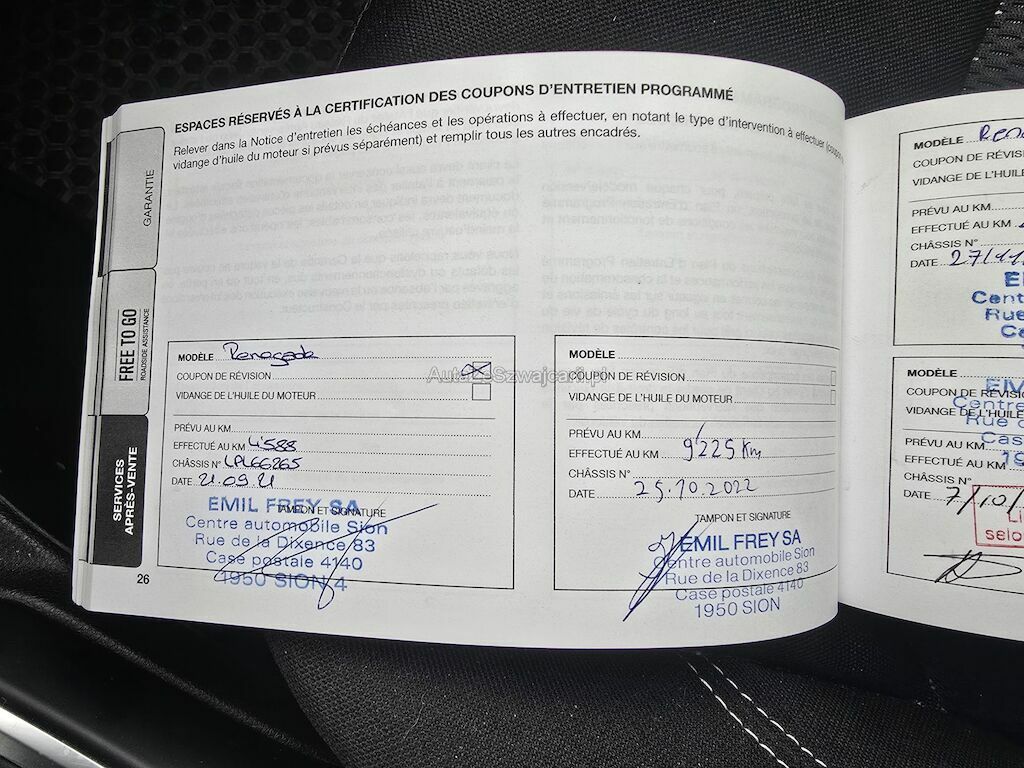 ESPACES RÉSERVÉS À LA CERTIFICATION DES COUPONS D'ENTRETIEN PROGRAMMÉ
Relever dans la Notice d'entretien les échéances et les opérations à effectuer, en notant le type d'intervention à effectuer (coupon
vidange d'huile du moteur si prévus séparément) et remplir tous les autres encadrés.
GARANTIE
FREE TO GO
ROADSIDE ASSISTANCE
SERVICES
APRÈS-VENTE
26
MODÈLE Renegade
COUPON DE RÉVISION X
VIDANGE DE L'HUILE DU MOTEUR
PRÉVU AU KM
EFFECTUÉ AU KM 4'588
CHÂSSIS N° LPL66265
DATE 21.09.21
TAMPON ET SIGNATURE
EMIL FREY SA
Centre automobile Sion
Rue de la Dixence 83
Case postale 4140
1950 SION 4
MODÈLE
COUPON DE RÉVISION
VIDANGE DE L'HUILE DU MOTEUR
PRÉVU AU KM
EFFECTUÉ AU KM 9'225 Km
CHÂSSIS N°
DATE 25.10.2022
TAMPON ET SIGNATURE
EMIL FREY SA
Centre automobile Sion
Rue de la Dixence 83
Case postale 4140
1950 SION
MODÈLE
COUPON DE RÉVISI
VIDANGE DE L'HUILE
PRÉVU AU KM
EFFECTUÉ AU KM
CHÂSSIS N°
DATE 27/11
Cent
Rue
MODÈLE
COUPON DE RÉVISI
VIDANGE DE L'HUILE
PRÉVU AU KM
EFFECTUÉ AU KM
CHÂSSIS N°
DATE 7/10/
EMI
Centre
Rue de
Cas
selo
AutazeSzwajcarii.pl